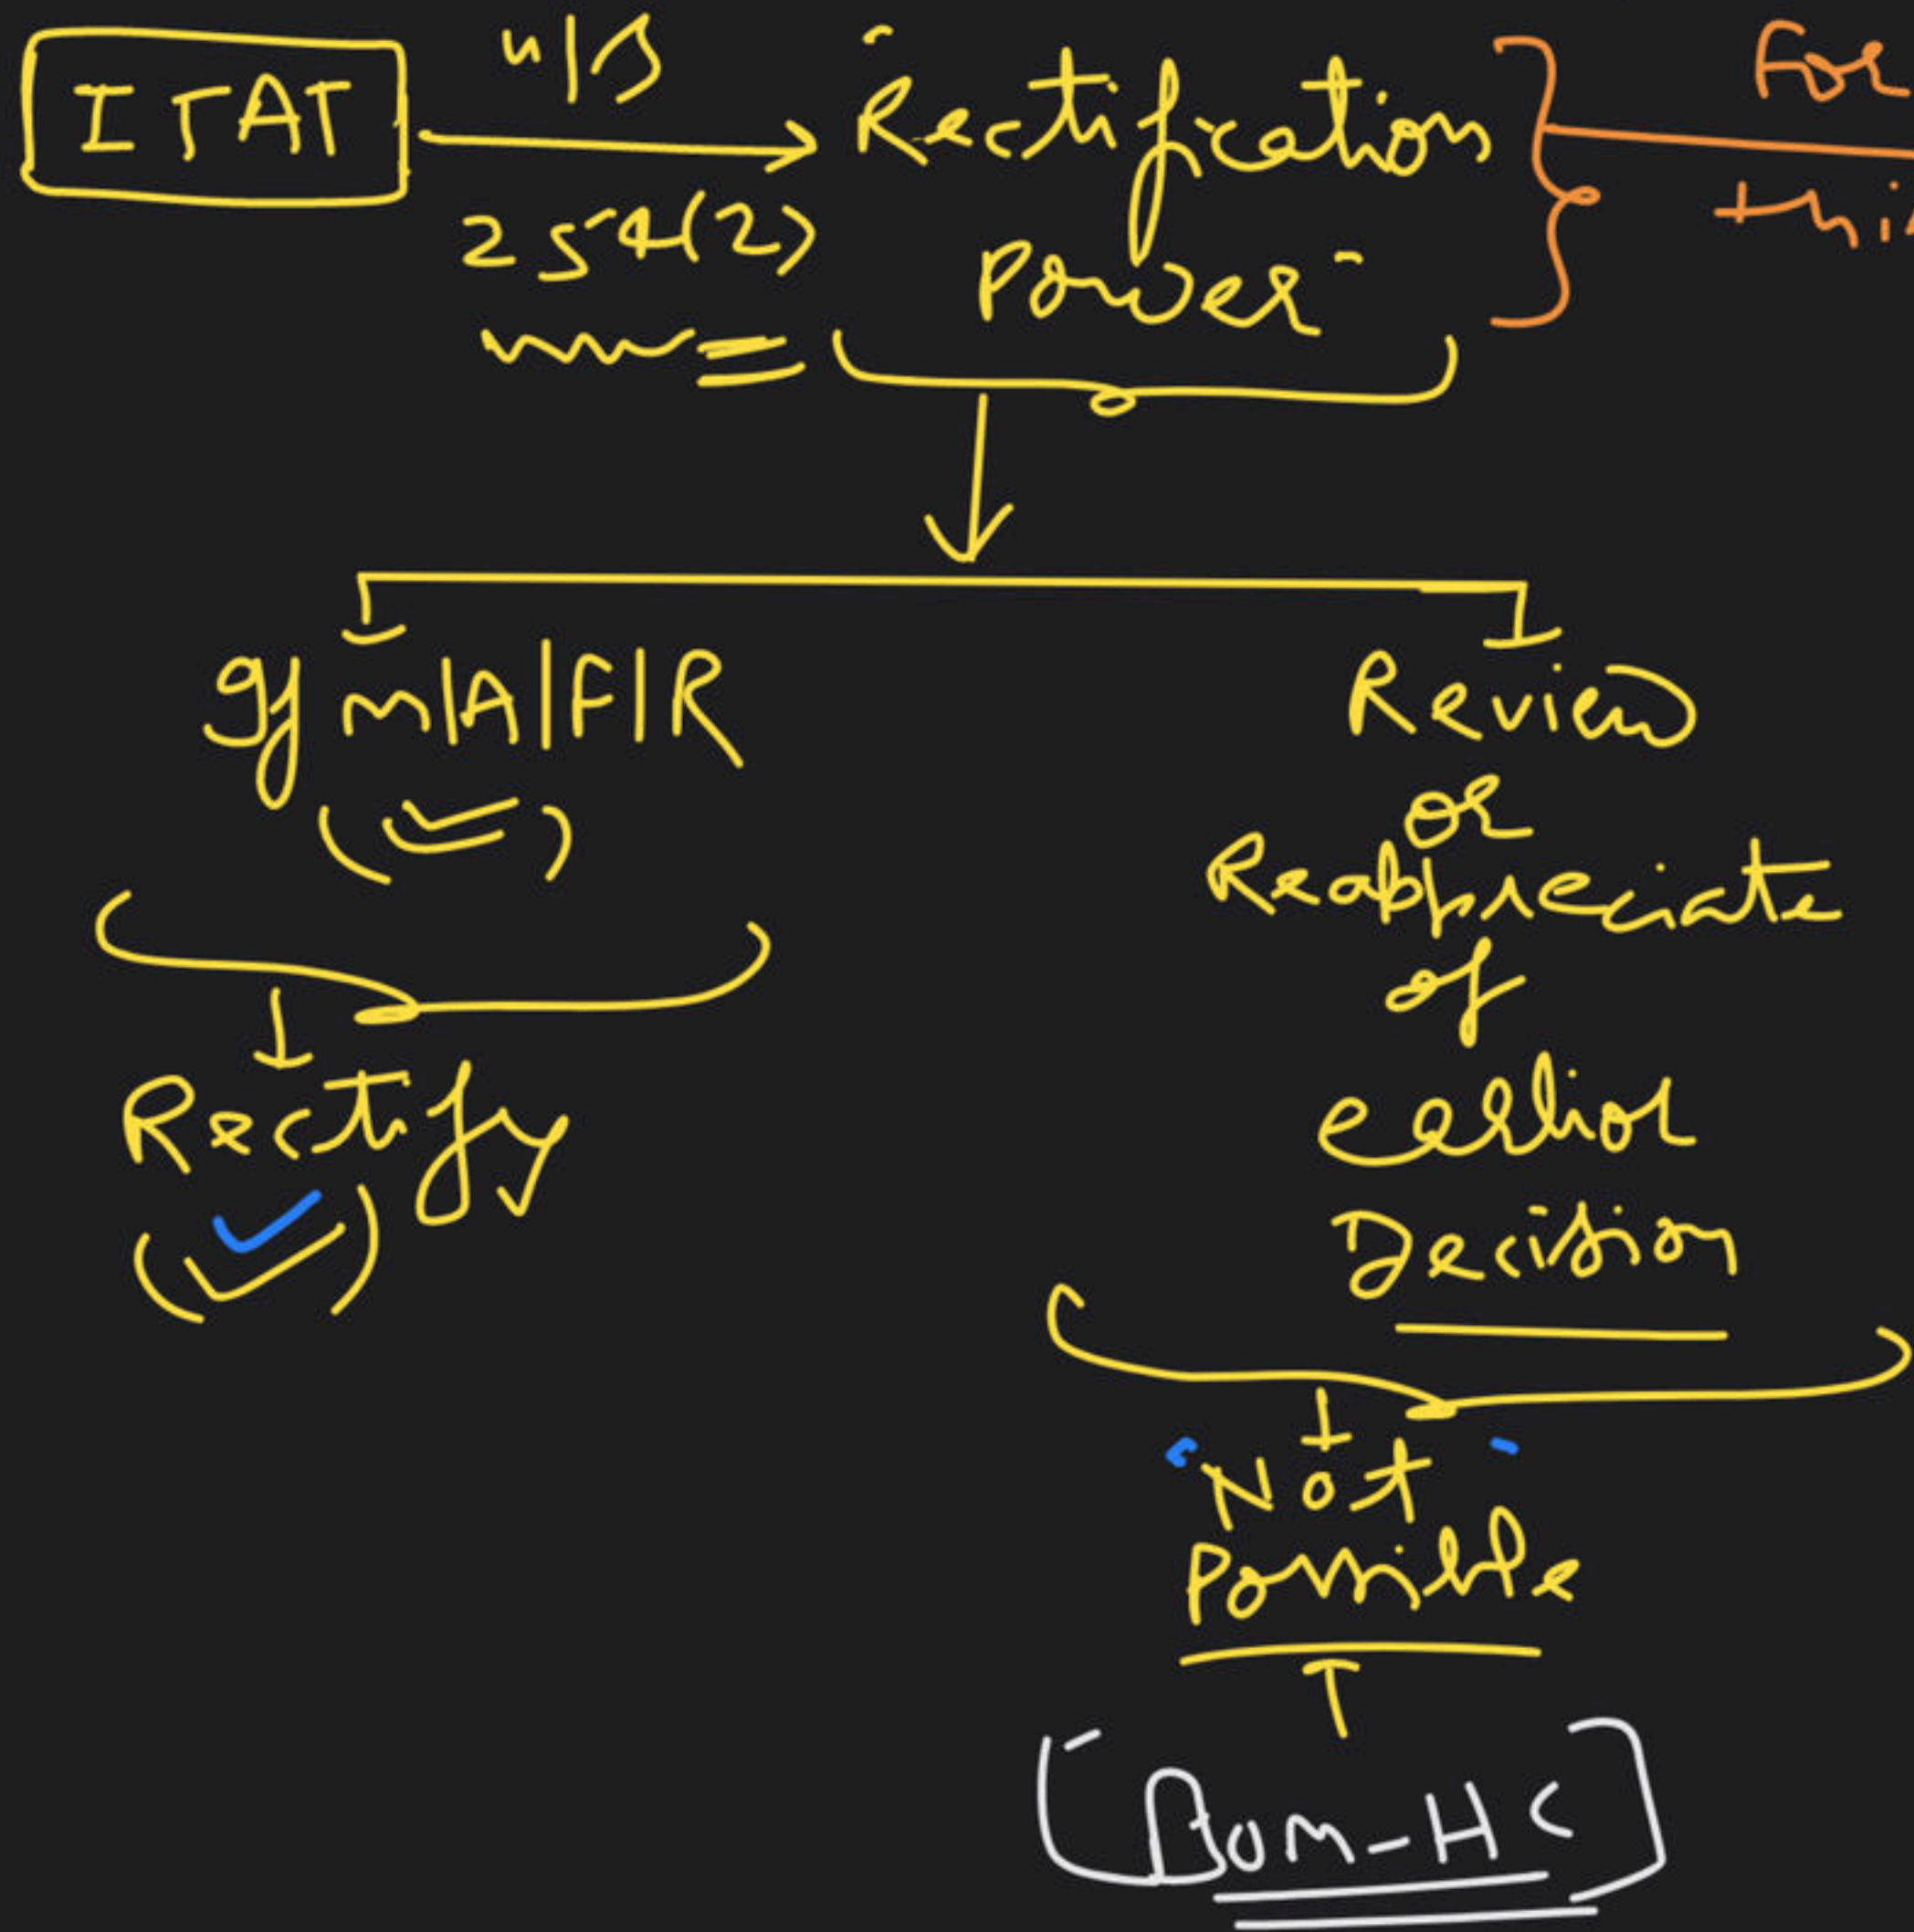 ITAT
u/s
254(2)
Rectification
Power
For
this
If M/A/F/R
Rectify
Review
or
Reappreciate
of
earlier
Decision
Not
Possible
Bom-HC